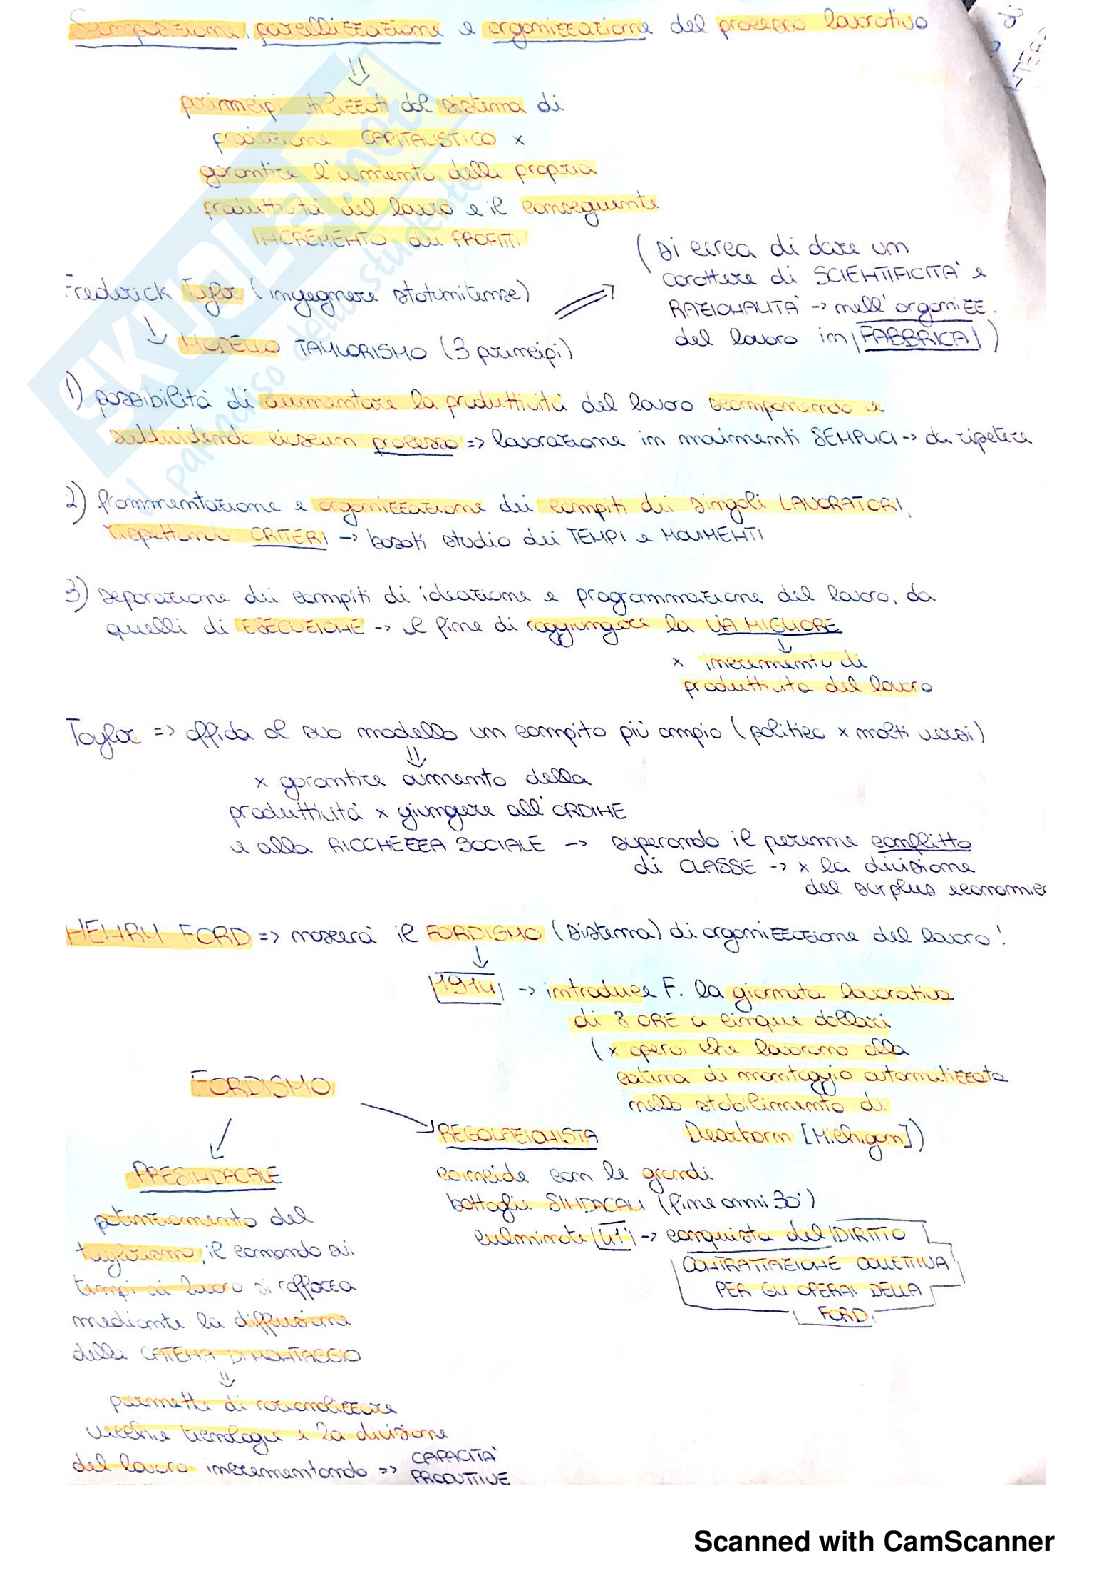 Scomposizione, parcellizzazione e organizzazione del processo lavorativo
principi utilizzati dal sistema di
produzione CAPITALISTICO x
garantire l'aumento della propria
produttività del lavoro e il conseguente
INCREMENTO dei PROFITTI.
Frederick Taylor (ingegnere statunitense)
MODELLO TAYLORISMO (3 principi)
(si cerca di dare un
carattere di SCIENTIFICITÀ e
RAZIONALITÀ -> nell'organizz.
del lavoro in FABBRICA)
1) possibilità di aumentare la produttività del lavoro scomponendo e
suddividendo ciascun processo => lavorazione in movimenti SEMPLICI -> da ripetere
2) frammentazione e organizzazione dei compiti dei singoli LAVORATORI,
rispettando CRITERI -> basati studio dei TEMPI e MOVIMENTI
3) separazione dei compiti di ideazione e programmazione del lavoro, da
quelli di ESECUZIONE -> al fine di raggiungere la VIA MIGLIORE
x incremento di
produttività del lavoro
Taylor => affida al suo modello un compito più ampio (politico x molti versi)
x garantire aumento della
produttività x giungere all'ORDINE
e alla RICCHEZZA SOCIALE -> superando il perenne conflitto
di CLASSE -> x la divisione
del surplus economico
HENRY FORD => nascerà il FORDISMO (sistema) di organizzazione del lavoro!
1914 -> introduce F. la giornata lavorativa
di 8 ORE a cinque dollari
(x operai che lavorano alla
catena di montaggio automatizzata
nello stabilimento di
Dearborn [Michigan])
FORDISMO
PRESINDACALE
potenziamento del
taylorismo, il comando sui
tempi di lavoro si rafforza
mediante la diffusione
della CATENA DI MONTAGGIO
permette di razionalizzare
vecchie tecnologie e la divisione
del lavoro incrementando => CAPACITÀ
PRODUTTIVE
REGOLAZIONISTA
coincide con le grandi
battaglie SINDACALI (fine anni 30')
culminate 41' -> conquista del DIRITTO
CONTRATTAZIONE COLLETTIVA
PER GLI OPERAI DELLA
FORD.
SKUOLA.net
il paradiso dello studente
Scanned with CamScanner